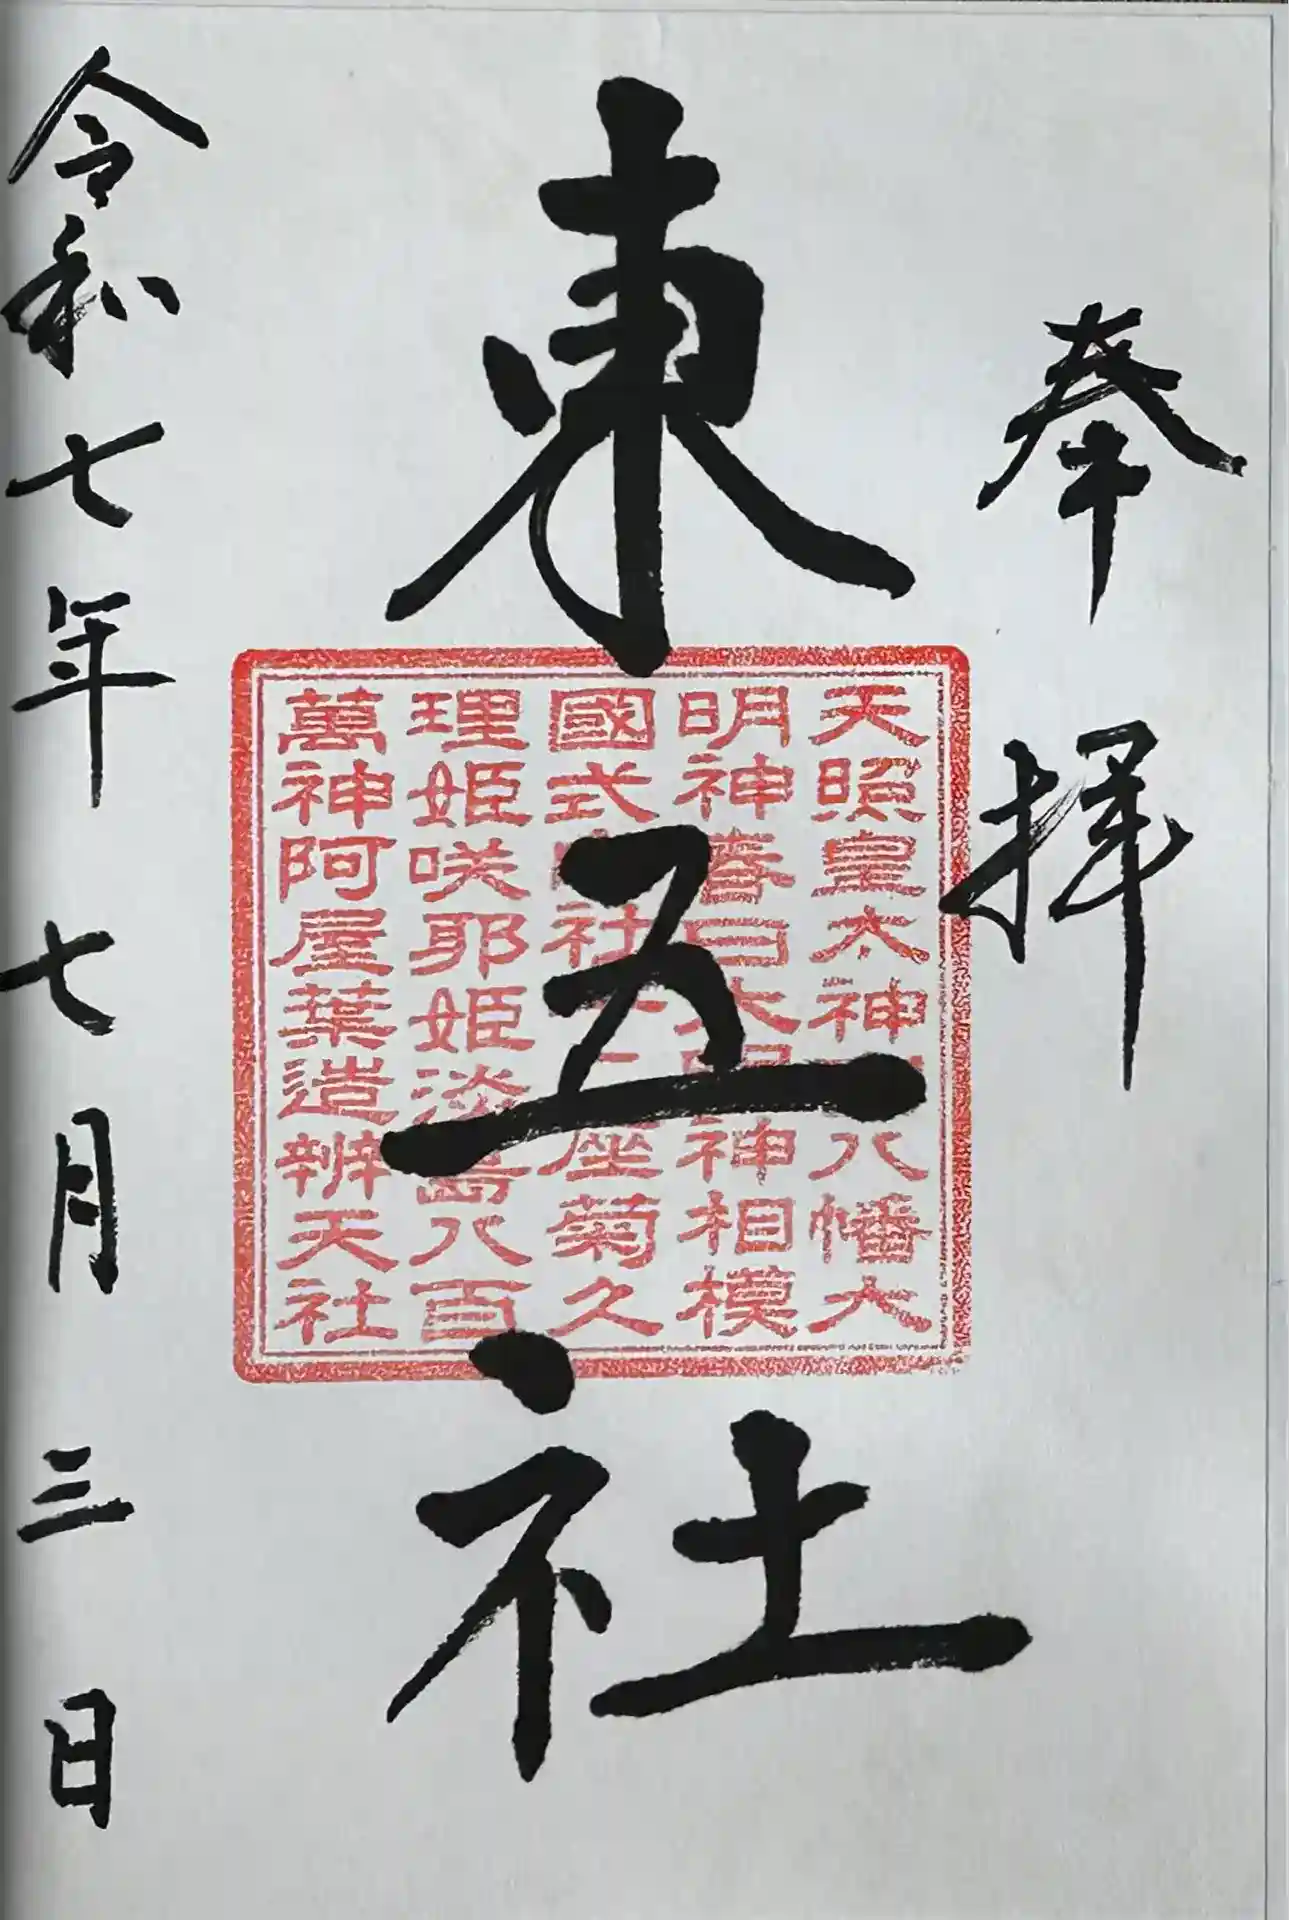 奉拝
東五社
天照皇太神八幡大
明神春日大明神相模
國式内社十三座菊久
理姫咲耶姫淡島八百
萬神阿屋葉造辨天社
令和七年七月三日